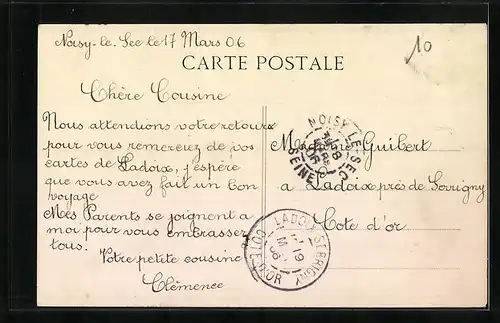 Noisy-le-Sec le 17 Mars 06
10
CARTE POSTALE
Chère Cousine
Nous attendions votre retour
pour vous remercier de vos
cartes de Ladoix, j'espère
que vous avez fait un bon
voyage
Mes Parents se joignent a
moi pour vous embrasser
tous.
Votre petite cousine
Clémence
NOISY-LE-SEC
SEINE
Madame Guibert
a Ladoix près de Sorrigny
Cote d'or
LADOIX-SERRIGNY
19
06
COTE-D'OR